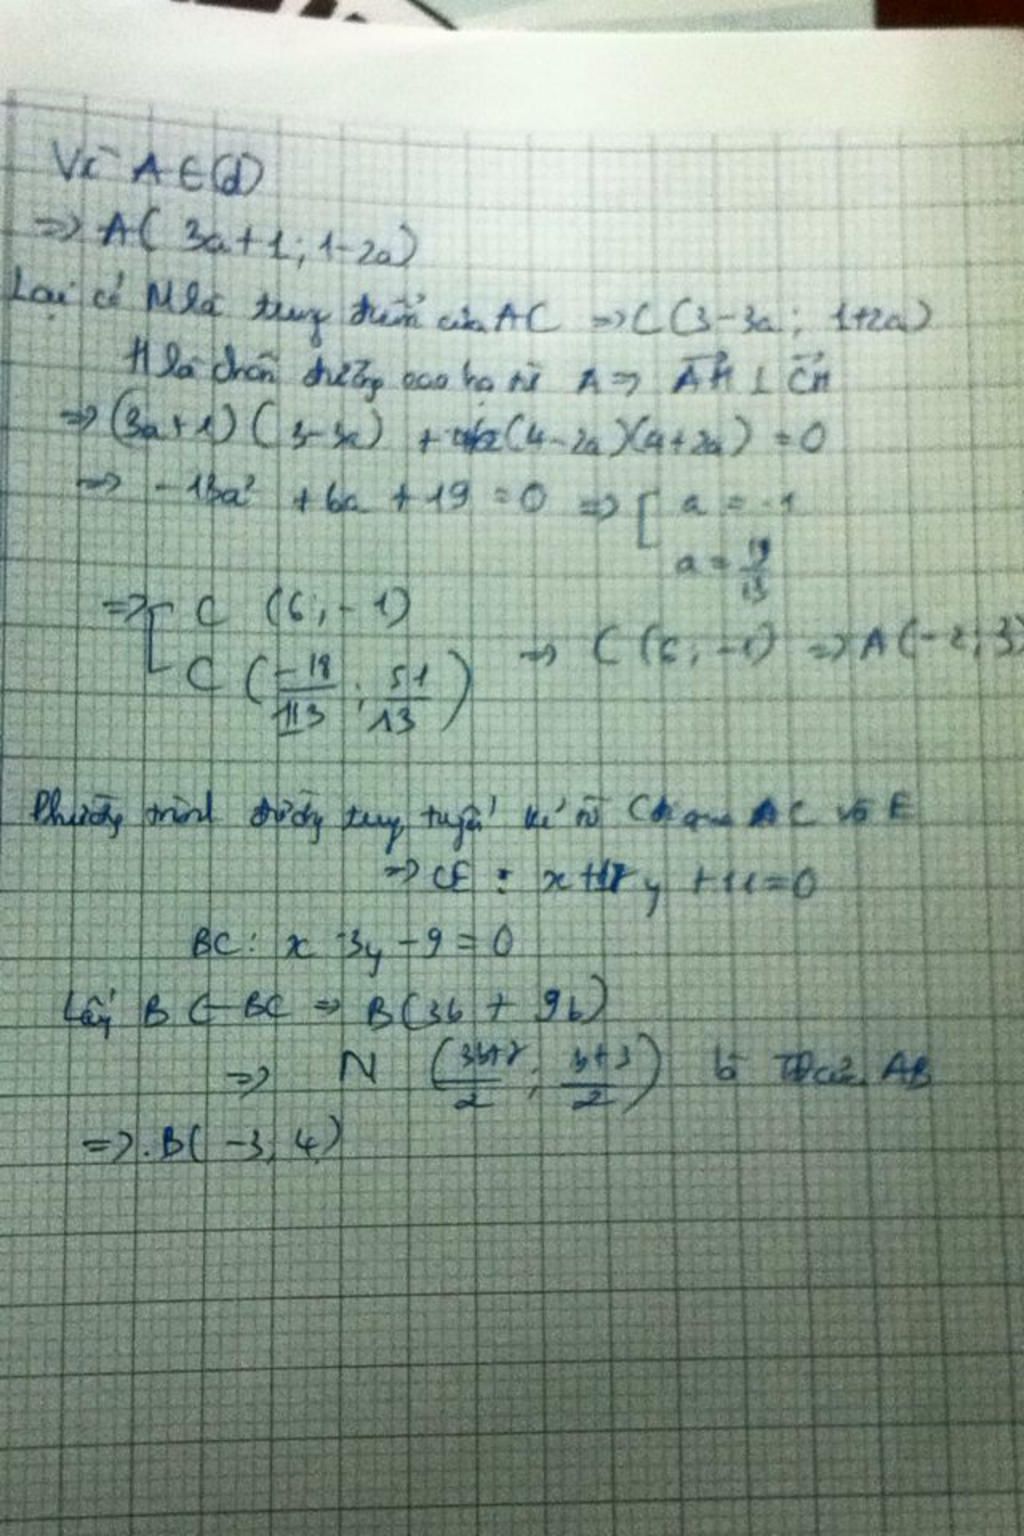 Vì A ∈ (d)
=> A( 3a+1; 1-2a)
Lại có M là trung điểm của AC => C(3-3a; 1+2a)
H là chân đường cao hạ từ A => AH ⊥ CH
=> (3a+1)(3-3a) + (4-2a)(4+2a) = 0
=> -13a² + 6a + 19 = 0 => [ a = -1
a = 19/13
=> [ C (6; -1)
C (-18/13; 51/13) => C (6; -1) => A(-2; 3)
Phương trình đường trung tuyến kẻ từ C qua C và E
=> CE : x + 17y + 11 = 0
BC: x - 3y - 9 = 0
Lấy B ∈ BC => B(3b + 9b)
=> N (3b+7/2; b+3/2) là TĐ của AB
=> B(-3, 4)